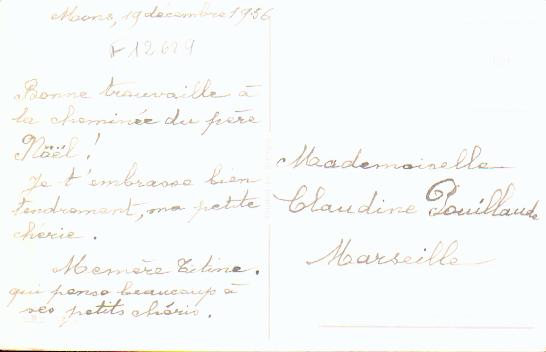 Mons, 19 décembre 1956
F 12629
Bonne trouvaille à
la cheminée du père
Noël !
Je t'embrasse bien
tendrement, ma petite
chérie.
Memère Titine.
qui pense beaucoup à
ses petits chéris.
Mademoiselle
Claudine Pouillaude
Marseille